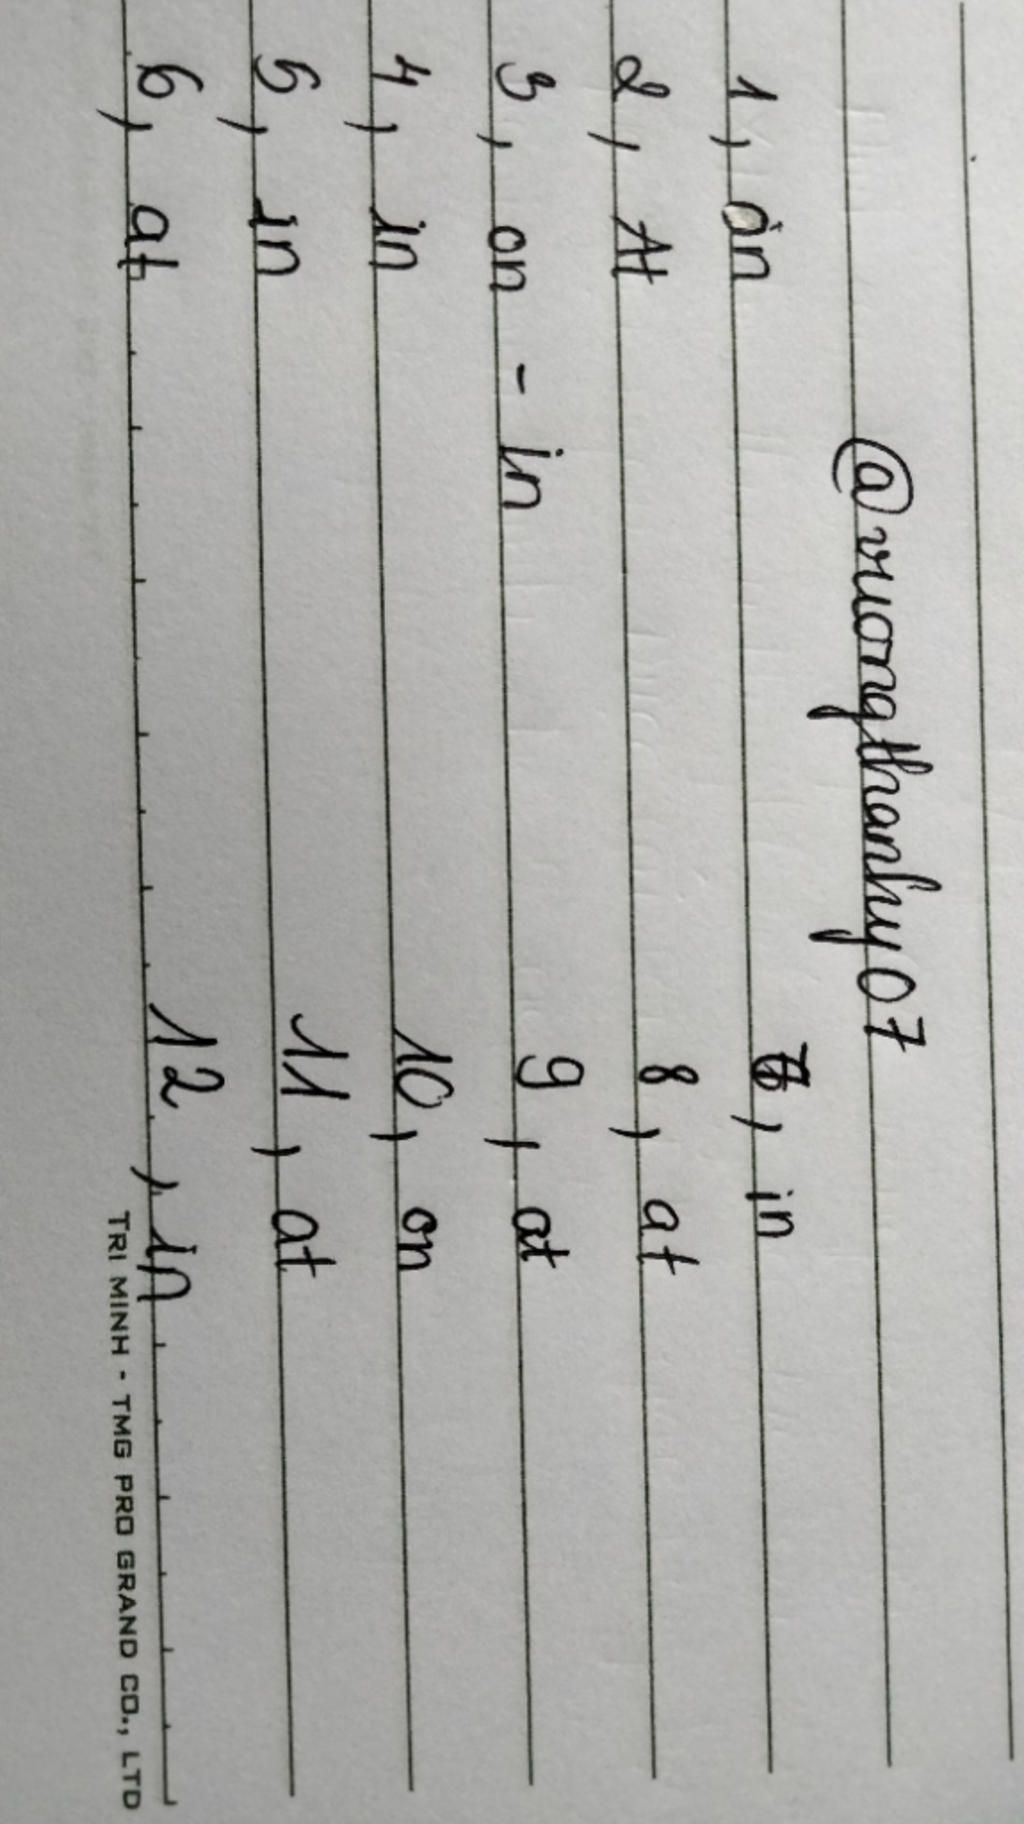 @vuongthanhy07
1, on 7, in
2, At 8, at
3, on - in 9, at
4, in 10, on
5, in 11, at
6, at 12, in
TRI MINH - TMG PRO GRAND CO., LTD